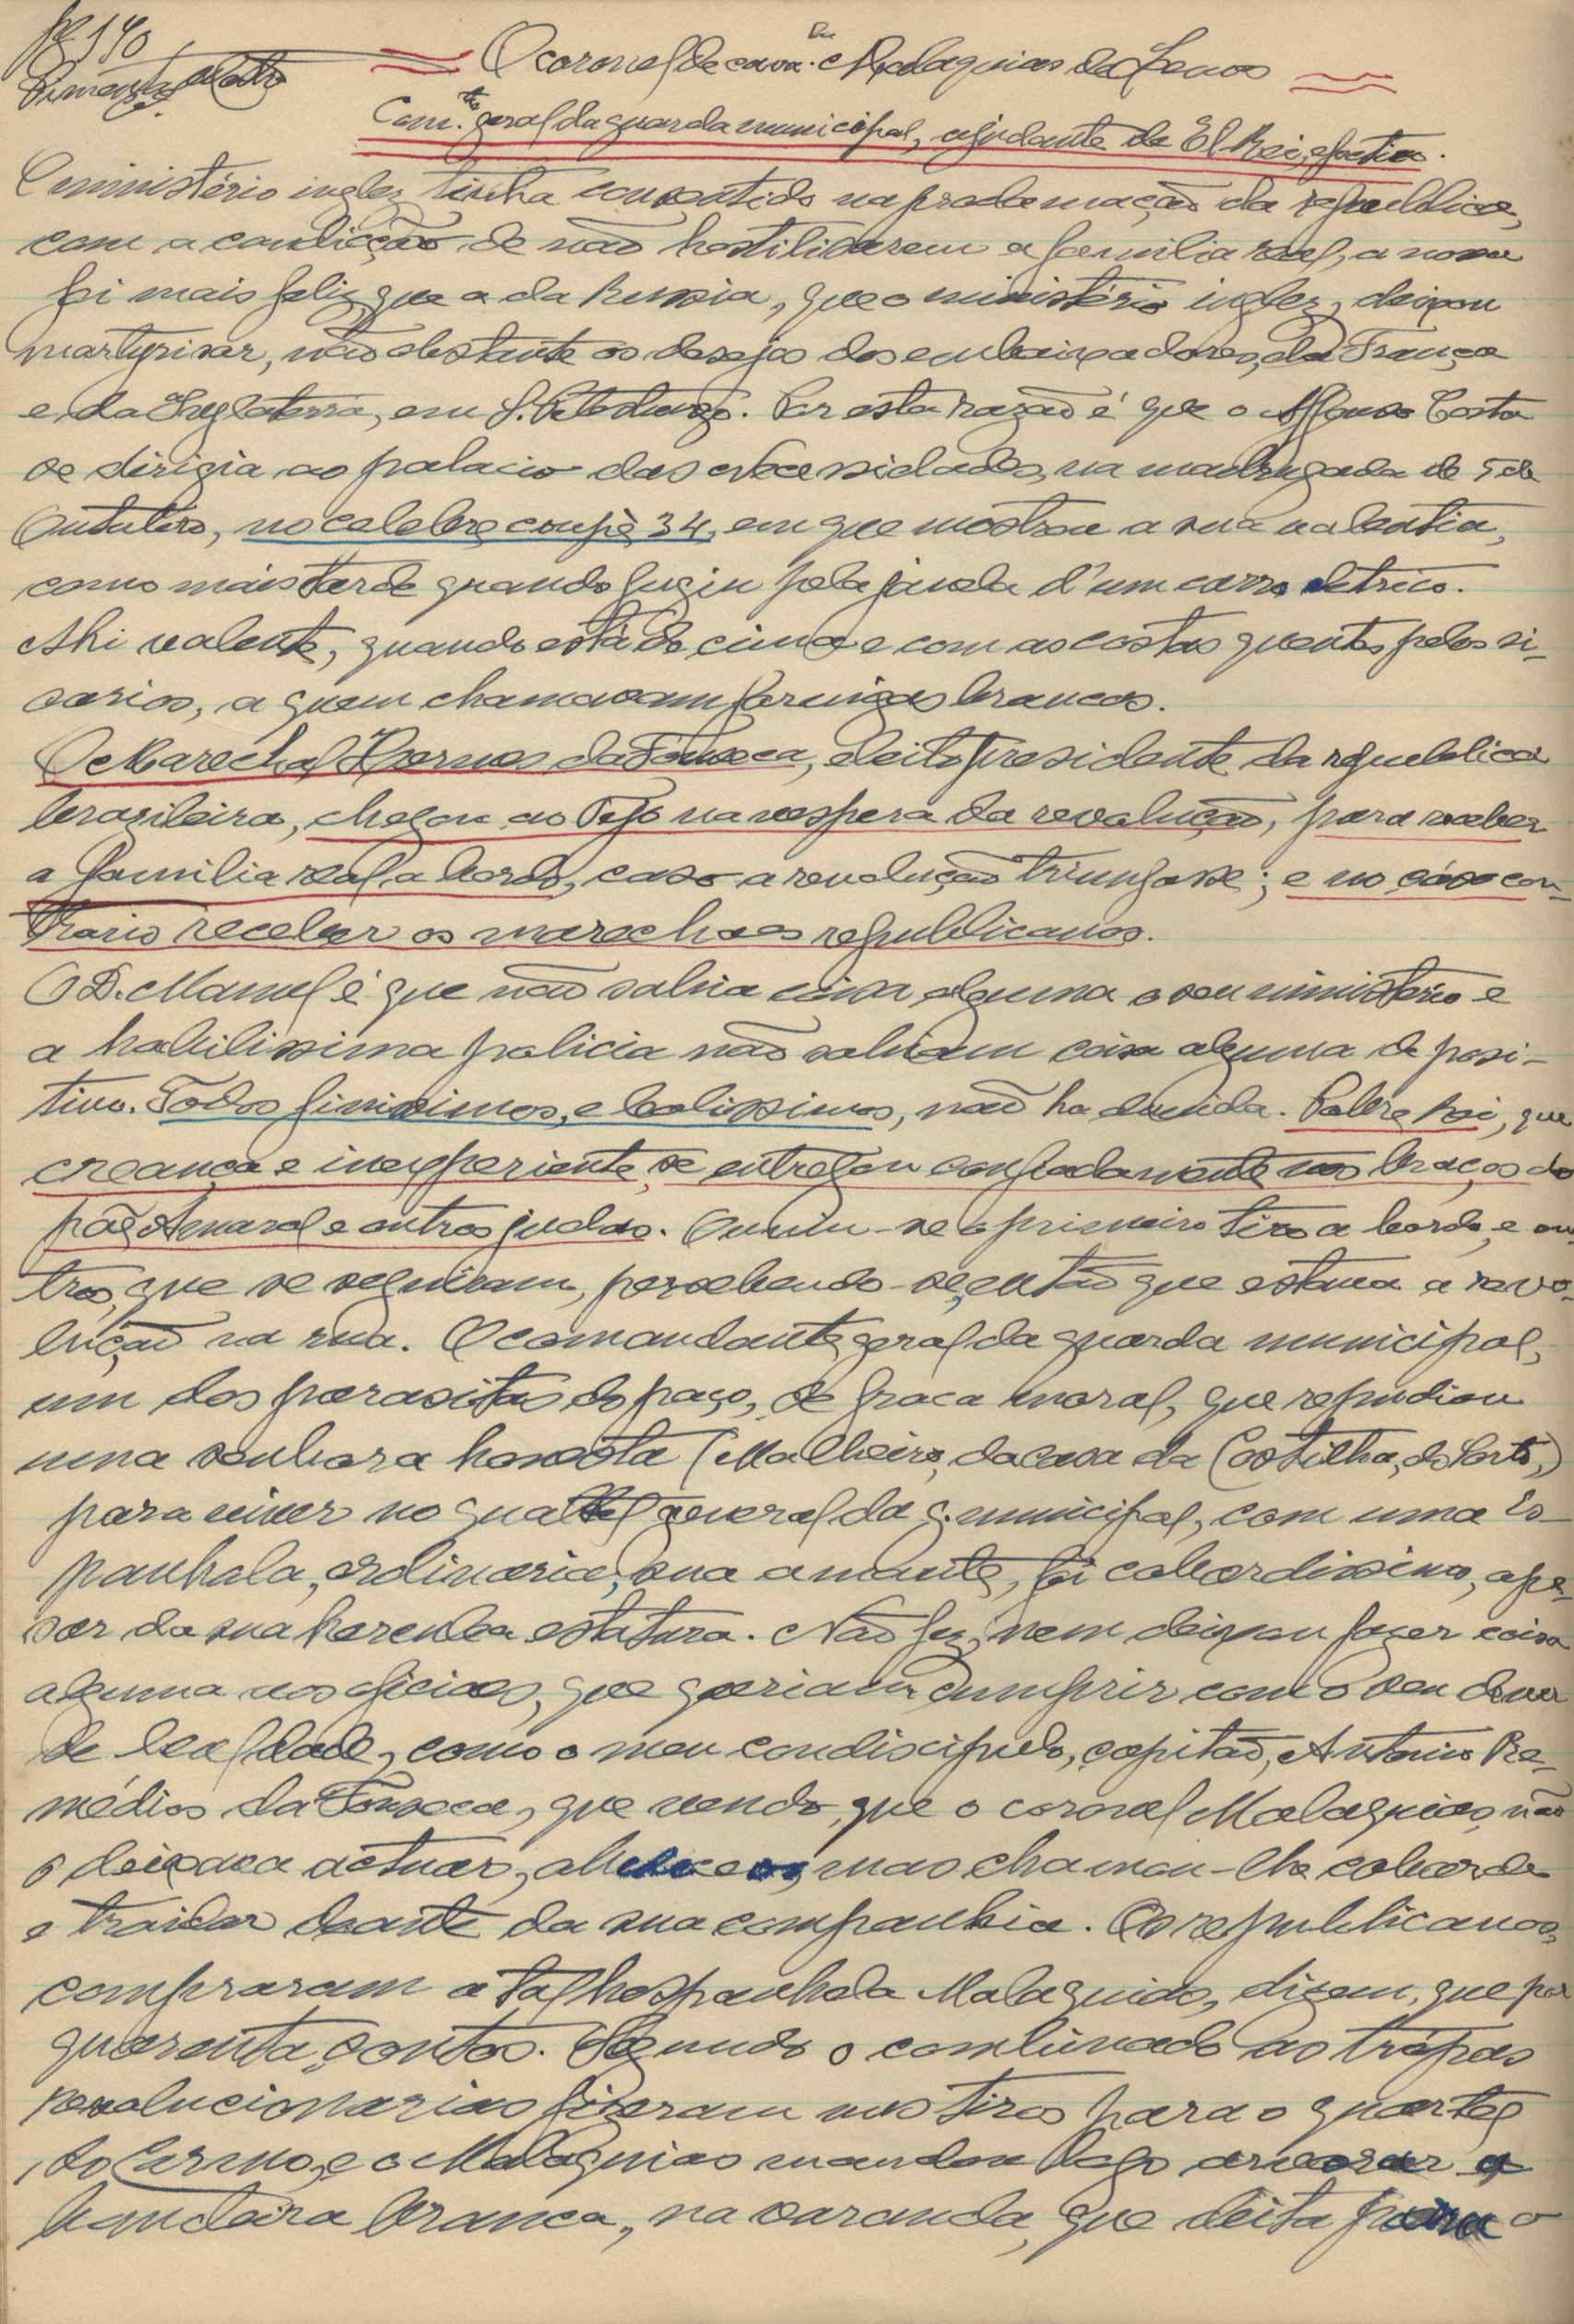 pg 140
Pimenta de Castro
O coronel de cava.ria Malaquias de Lemos
Com.te geral da guarda municipal, ajudante de El-Rei, efectivo.
O ministério inglez tinha consentido na proclamação da republica,
com a condicção de não hostilisarem a familia real, a nossa
foi mais feliz que a da Russia, que o ministério inglez, deixou
martyrisar, não obstante os desejos dos embaixadores, da França
e da Inglaterra, em S. Petesburgo. Por esta razão é que o Affonso Costa
se dirigia ao palacio das Necessidades, na madrugada de 5 de
Outubro, no celebre coupè 34, em que mostrou a sua valentia,
como mais tarde quando fugiu pela janela d'um carro eletrico.
Ahi valente, quando está de cima e com as costas quentes pelos si-
carios, a quem chamavam formigas brancas.
O Marechal Hermes da Fonseca, eleito presidente da republica
brazileira, chegou ao Tejo na vespera da revolução, para receber
a familia real a bordo, caso a revolução triunfasse; e no cáso con-
trario receber os marechaes republicanos.
O D. Manuel é que não sabia coisa alguma o seu ministério e
a habilissima policia não sabiam coisa alguma de posi-
tivo. Todos finissimos, e belissimos, não ha duvida. Pobre Rei, que
creança e inexperiente, se entregou confiadamente nos braços do
pãe Amaral e outros judas. Ouviu-se o primeiro tiro a bordo, e ou-
tros, que se seguiram, percebendo-se, então que estava a revo-
lução na rua. O comandante, geral da guarda municipal,
um dos parasitas do paço, de fraca moral, que repudiou
uma senhora honesta (Malheiro, da casa da Costilha, do Porto,)
para viver no quartel general da g. municipal, com uma es-
panhola, ordinaria, sua amante, foi cobardissimo, ape-
sar da sua herculea estatura. Não fez, nem deixou fazer coisa
alguma aos oficiaes, que queriam cumprir com o seu dever
de lealdade, como o meu condiscipulo, capitão, Antonio Re-
médios da Fonseca, que vendo, que o coronel Malaquias, não
o deixava actuar, mas chamou-lhe cobarde
e traidor deante da sua companhia. Os republicanos,
compraram a tal hespanhola Malaquias, dizem, que por
quarenta contos. Segundo o combinado as trópas
revolucionarias fizeram uns tiros para o quartel
do Carmo, e o Malaquias mandou logo arvorar a
bandeira branca, na varanda, que deita para o